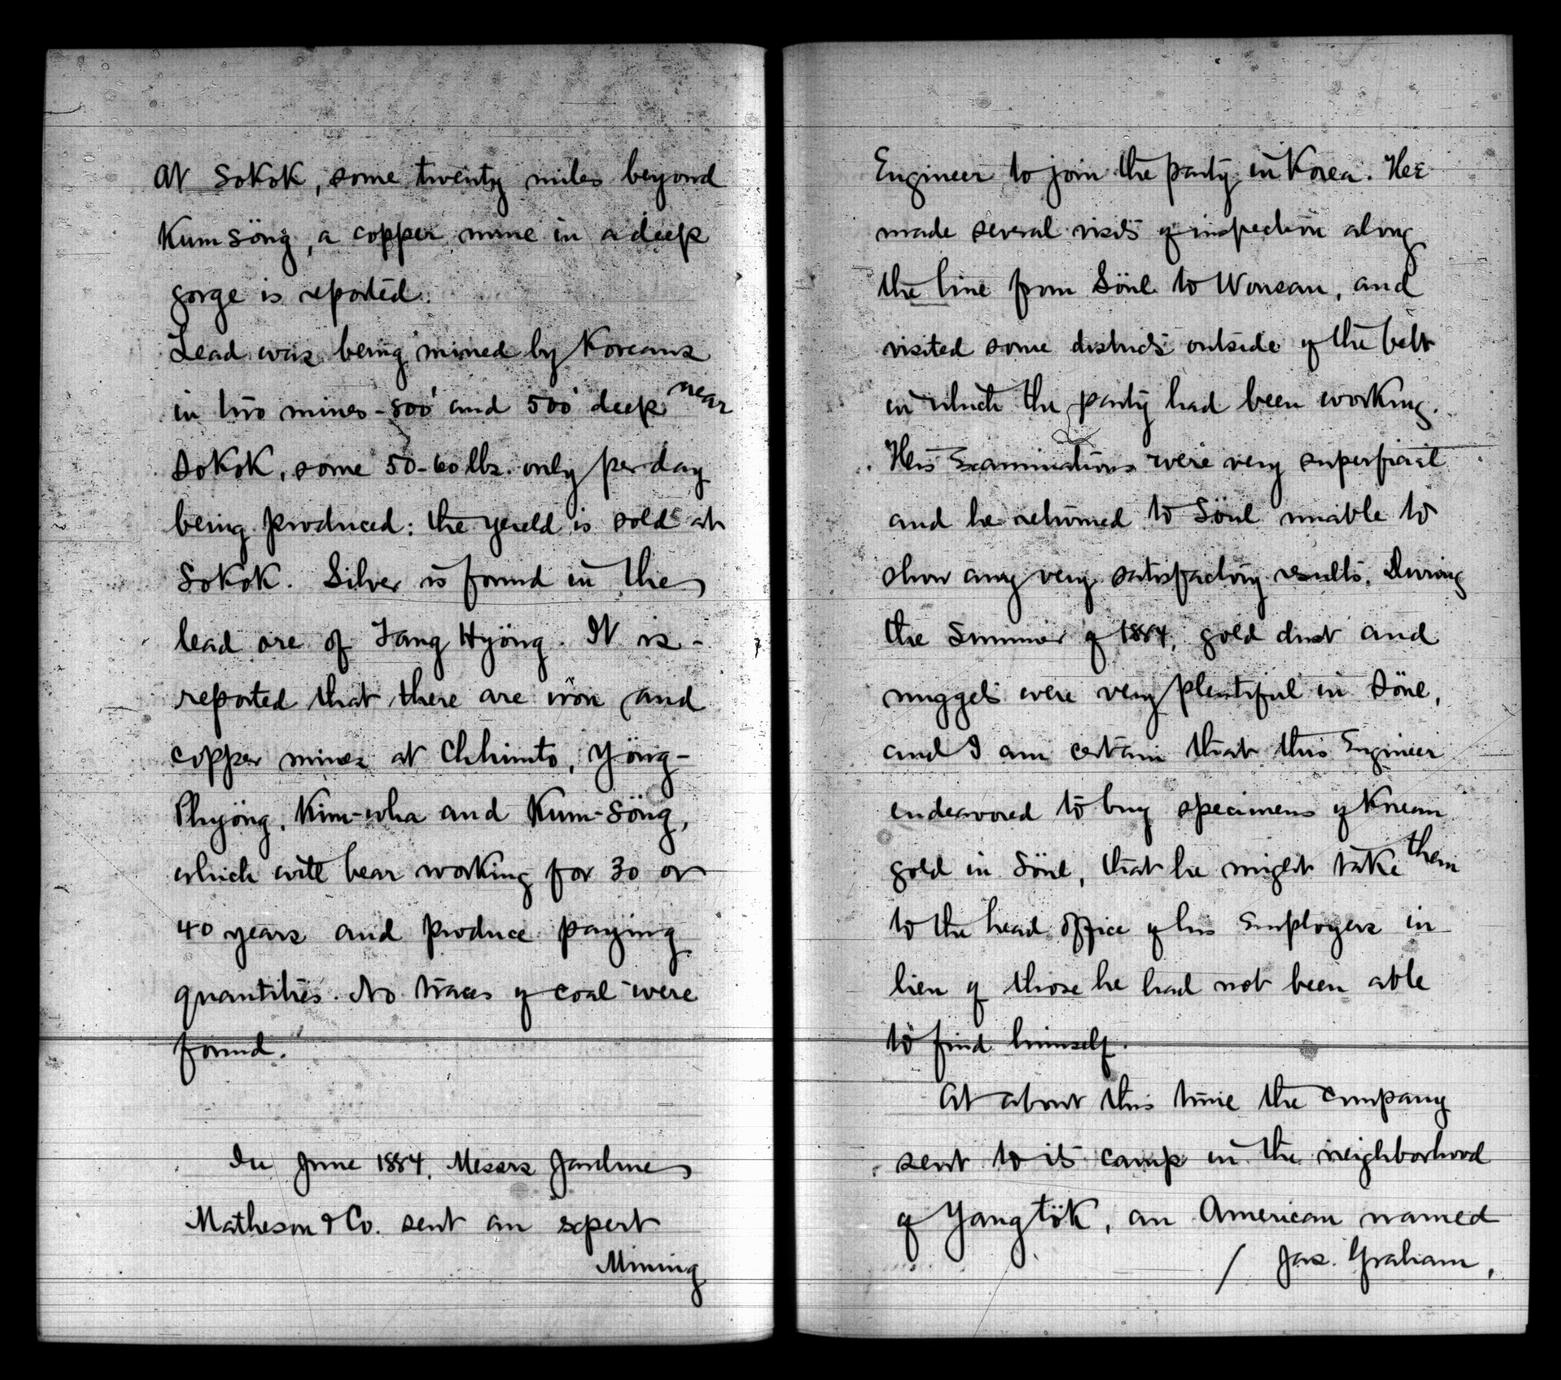 At Sokok, some twenty miles beyond
Kum söng, a copper mine in a deep
gorge is reported.
Lead was being mined by Koreans
in two mines - 800' and 500' deep near
Sokok, some 50-60 lbs. only per day
being produced: the yield is sold at
Sokok. Silver is found in the
lead ore of Tang Hyöng. It is -
reported that there are iron and
copper mines at Chhimto, Yöng-
Phyöng, Kim-wha and Kum-Söng,
which will bear working for 30 or
40 years and produce paying
quantities. No traces of coal were
found."
In June 1884, Messrs Jardine
Matheson & Co. sent an expert
Mining
Engineer to join the party in Korea. He
made several visits of inspection along
the line from Söul to Wonsan, and
visited some districts outside of the belt
in which the party had been working.
His Examinations were very superficial
and he returned to Söul unable to
show any very satisfactory results. During
the Summer of 1884, gold dust and
nuggets were very plentiful in Söul,
and I am certain that this Engineer
endeavored to buy specimens of Korean
gold in Söul, that he might take them
to the head office of his Employers in
lieu of those he had not been able
to find himself.
At about this time the company
sent to its camp in the neighborhood
of Yang tök, an American named
/ Jas. Graham,